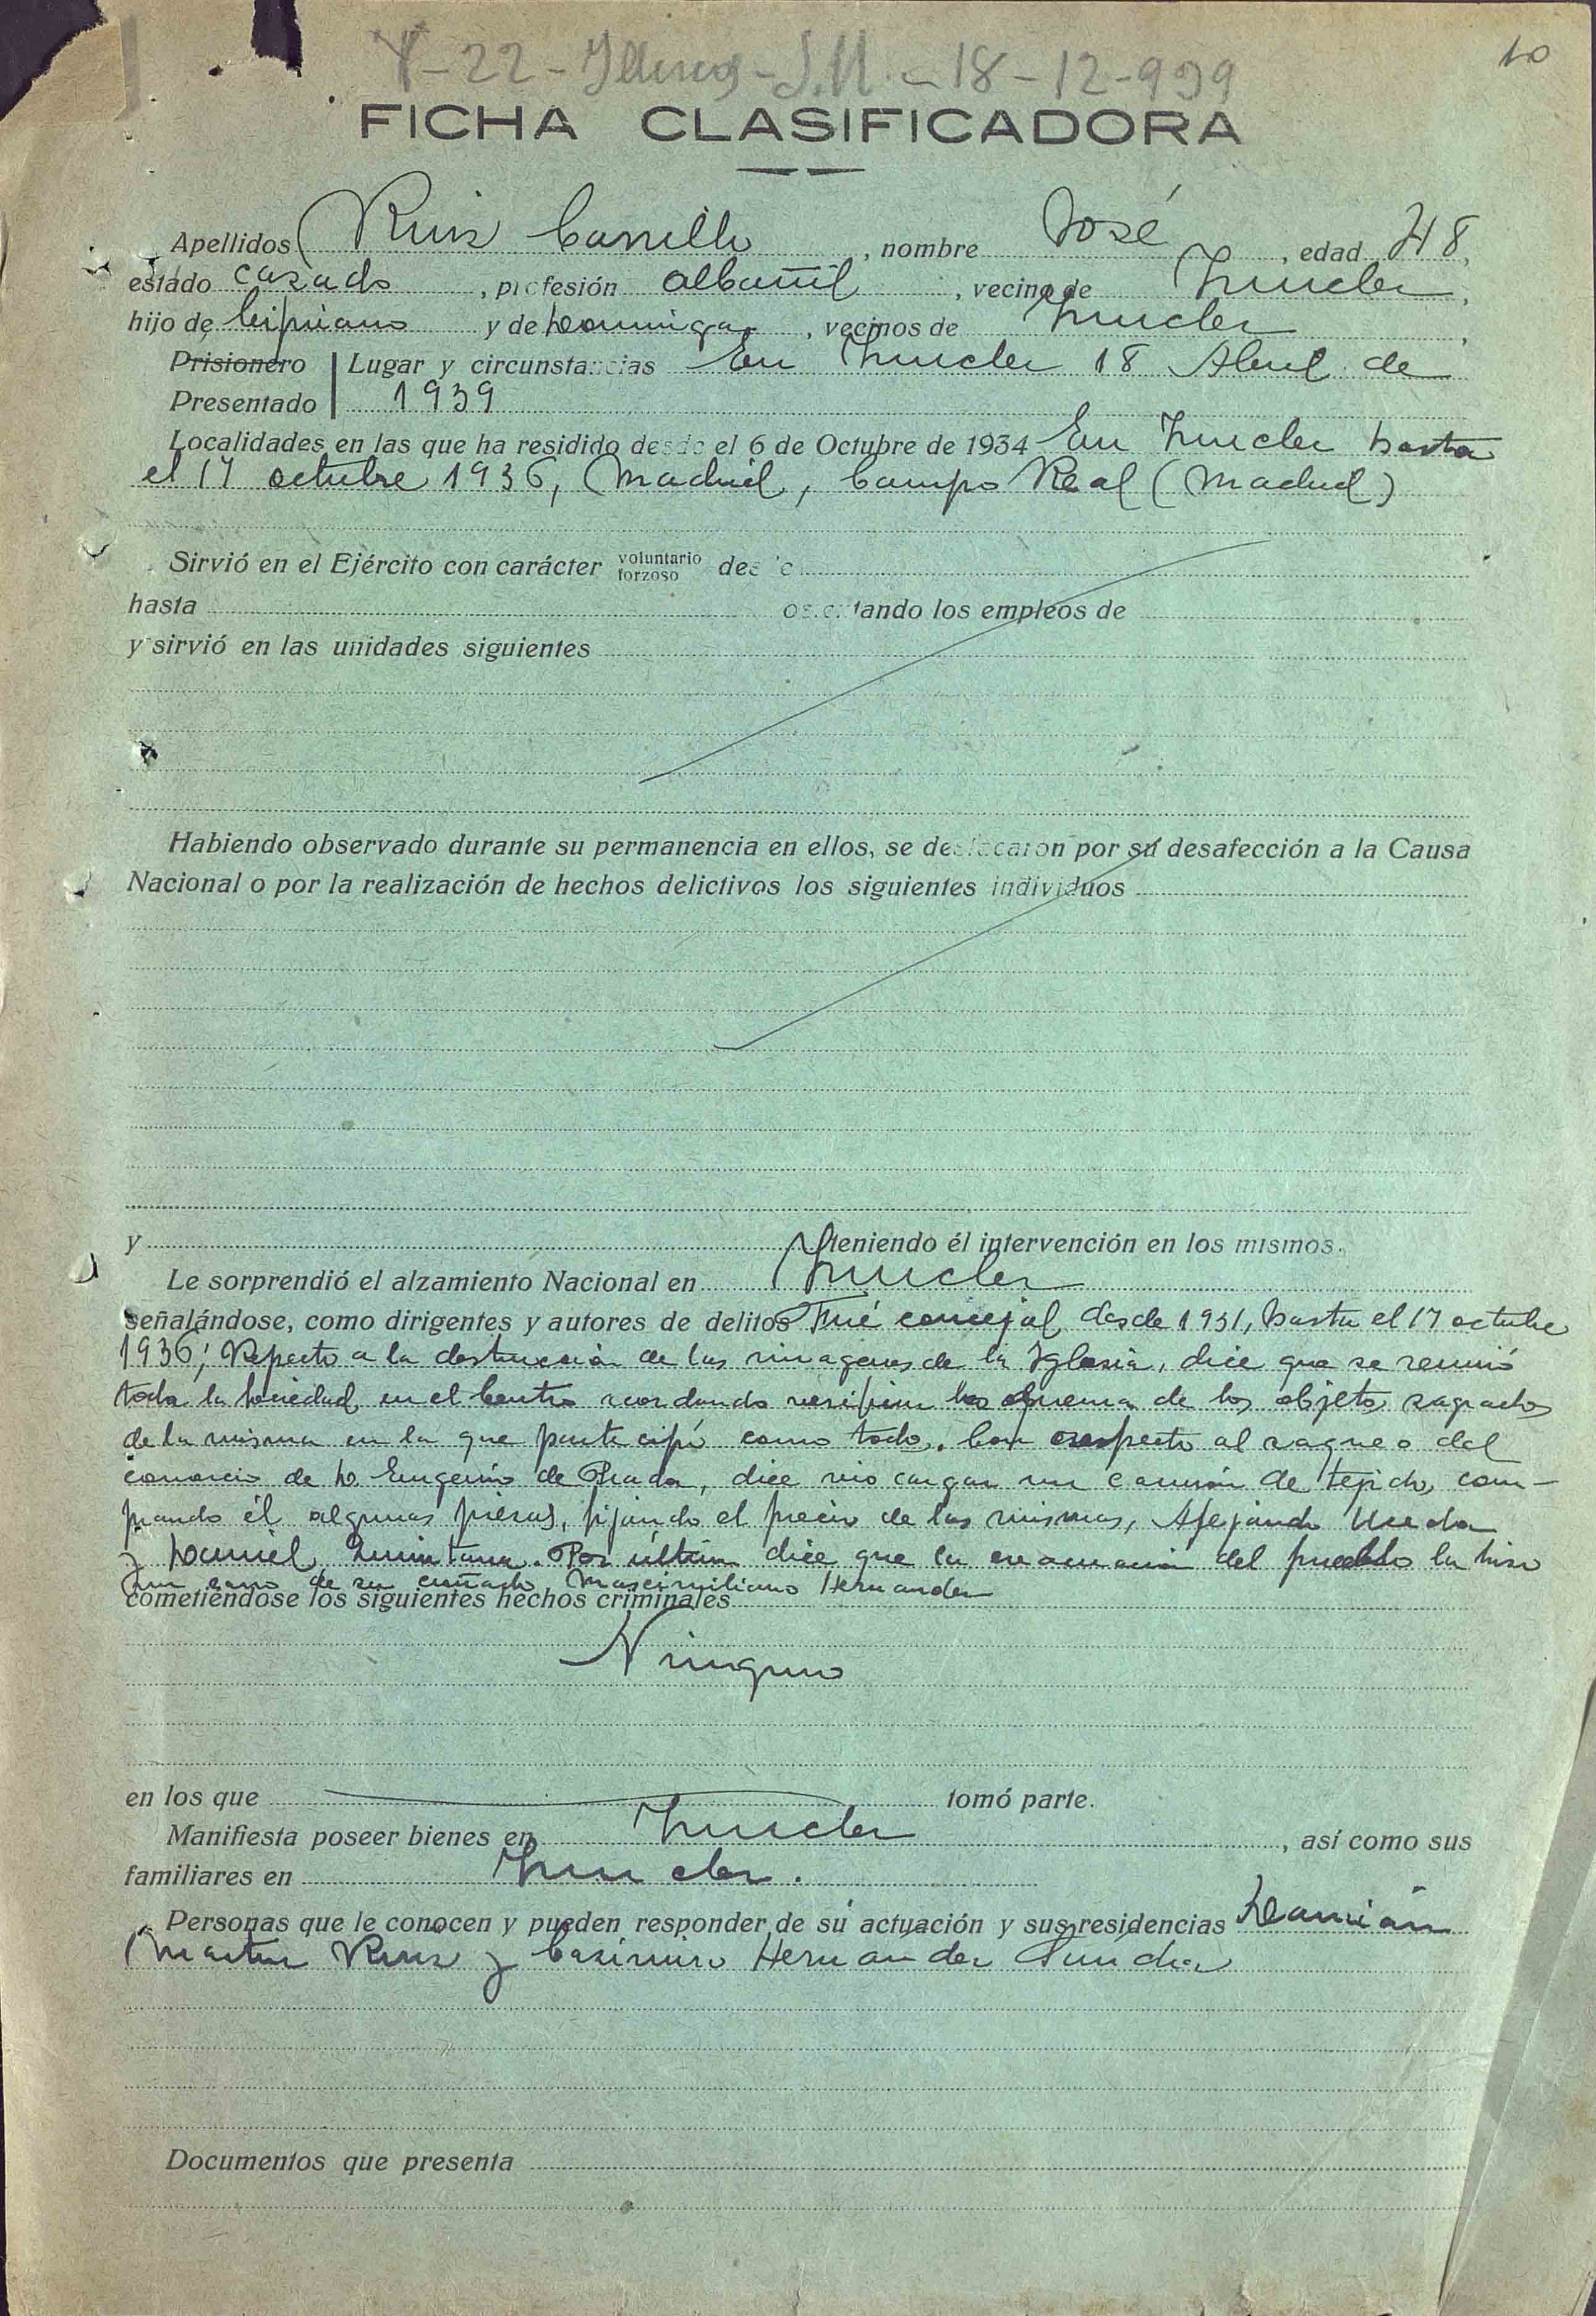 10
22 - Illescas - J.M. - 18-12-939
FICHA CLASIFICADORA
Apellidos Ruiz Carrillo, nombre José, edad 48,
estado casado, profesión albañil, vecino de Yuncler,
hijo de Cipriano y de Dominga, vecinos de Yuncler,
Prisionero | Lugar y circunstancias En Yuncler 18 Abril de
Presentado | 1939
Localidades en las que ha residido desde el 6 de Octubre de 1934 En Yuncler hasta
el 17 octubre 1936, Madrid, Campo Real (Madrid)
Sirvió en el Ejército con carácter voluntario forzoso desde
hasta ostentando los empleos de
y sirvió en las unidades siguientes
Habiendo observado durante su permanencia en ellos, se destacaron por su desafección a la Causa
Nacional o por la realización de hechos delictivos los siguientes individuos
y teniendo él intervención en los mismos.
Le sorprendió el alzamiento Nacional en Yuncler
señalándose, como dirigentes y autores de delitos Fué concejal desde 1931, hasta el 17 octubre
1936; Respecto a la destrucción de las imagenes de la Iglesia, dice que se reunió
toda la Sociedad en el Centro acordando la quema de los objetos sagrados
de la misma en la que participó como todo. Con respecto al saqueo del
comercio de D. Eugenio de Prada, dice vio cargar un camión de tejidos, com-
prando él algunas piezas, fijando el precio de las mismas, Alejandro
y Daniel Quintana. Por último dice que la evacuación del pueblo la hizo
en carro de su cuñado Maximiliano Hernandez
cometiéndose los siguientes hechos criminales
Ninguno
en los que tomó parte.
Manifiesta poseer bienes en Yuncler, así como sus
familiares en Yuncler.
Personas que le conocen y pueden responder de su actuación y sus residencias Damián
Martin Ruiz y Casimiro Hernandez Sanchez
Documentos que presenta